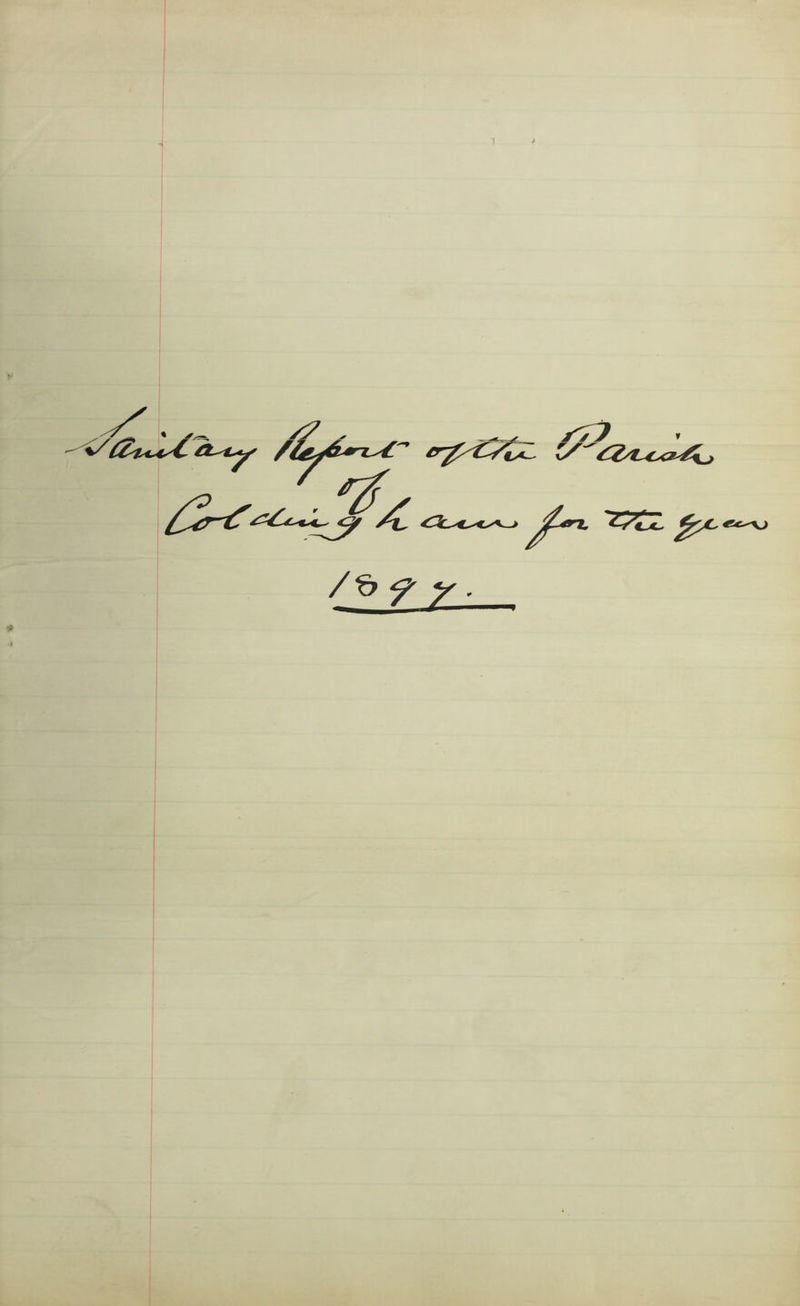 Sanitary Report of the Parish
of
Cottingham for the year
1897.